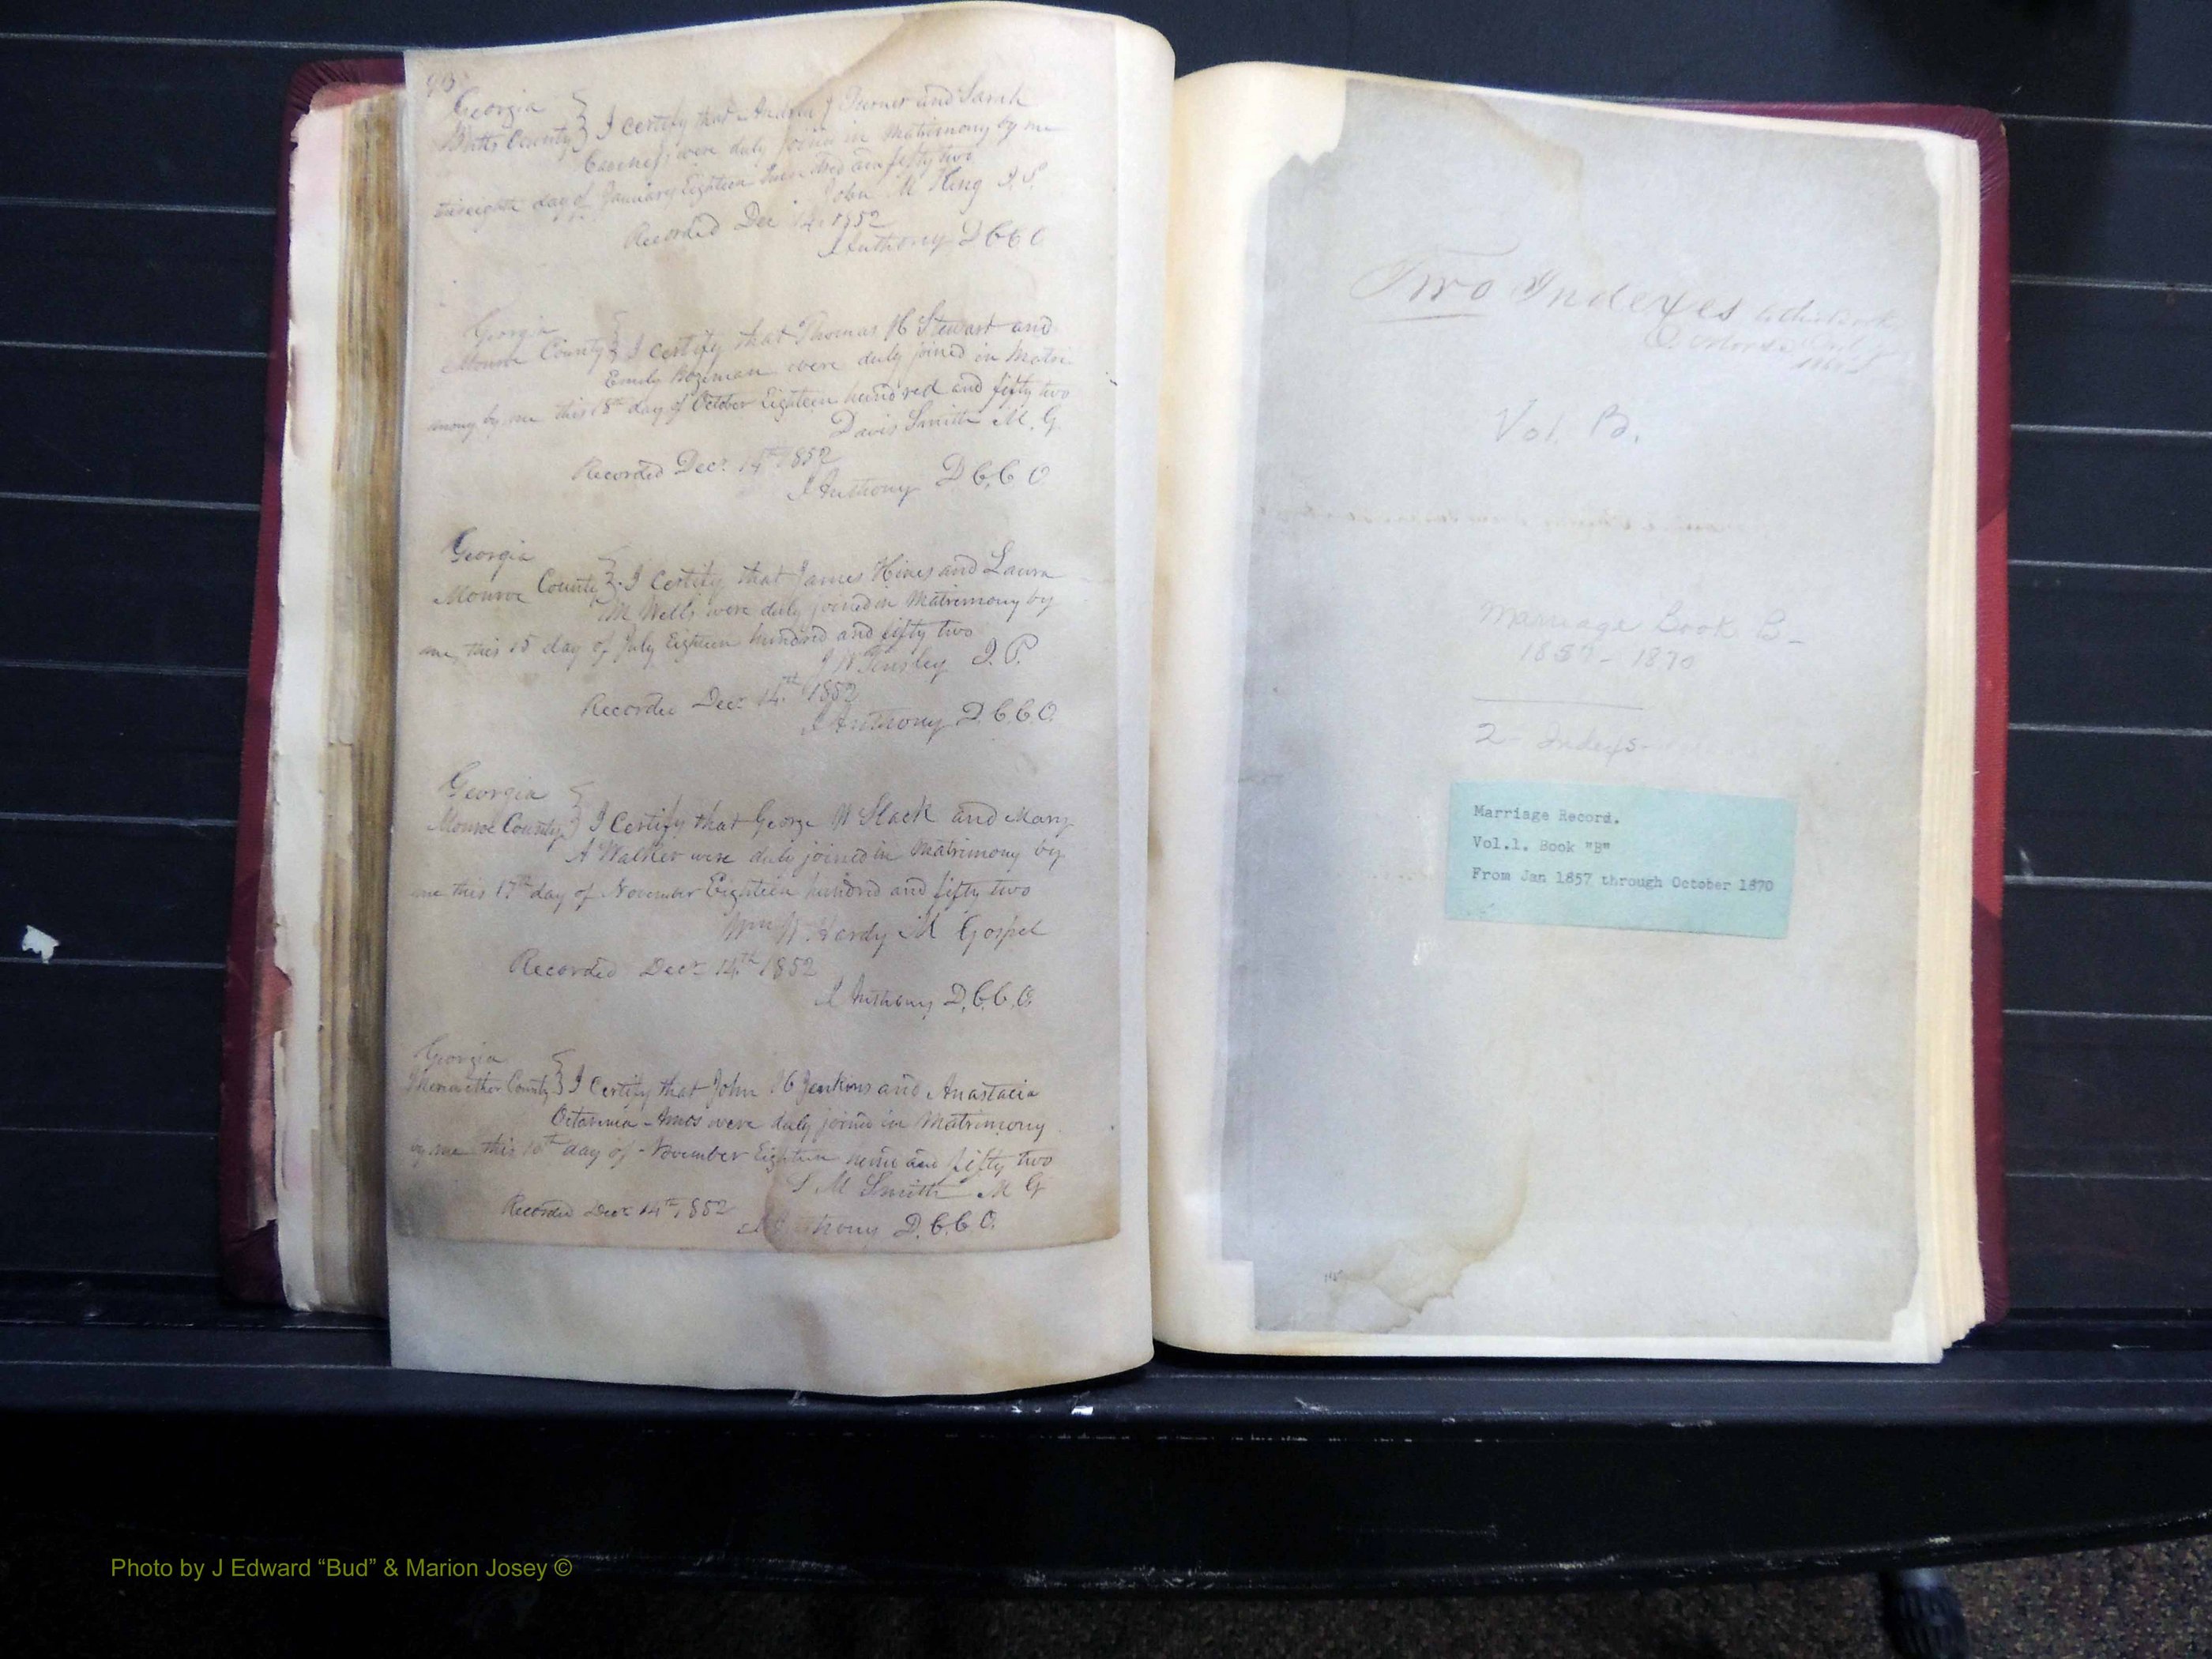 93
Georgia
Butts County } I certify that Andrew J Turner and Sarah
were duly joined in Matrimony by me
this eighth day of January Eighteen hundred and fifty two
John M King J.P.
Recorded Dec 14, 1852
J Anthony D C C O
Georgia
Monroe County } I certify that Thomas H Stewart and
Emily Bozeman were duly joined in Matri-
mony by me this 18th day of October Eighteen hundred and fifty two
Davis Smith M. G.
Recorded Decr 14th 1852
J Anthony D C C O
Georgia
Monroe County } I Certify that James Hines and Laura
M Wells were duly joined in Matrimony by
me, this 15 day of July Eighteen hundred and fifty two
Tinsley J. P.
Recorded Decr 14th 1852
J Anthony D. C. C. O.
Georgia
Monroe County } I Certify that George W Slack and Mary
A Walker were duly joined in Matrimony by
me this 17th day of November Eighteen hundred and fifty two
Wm W. Hardy M Gospel
Recorded Decr 14th 1852
J Anthony D. C. C. O.
Georgia
Meriwether County } I Certify that John H Jenkins and Anastacia
Amos were duly joined in Matrimony
by me this day of November Eighteen and fifty two
Smith M G
Recorded Decr 14th 1852
J Anthony D. C. C. O.
Two Indexes
Vol. B.
Marriage Book B-
1857 - 1870
2- Indexs-
Marriage Record.
Vol.1. Book "B"
From Jan 1857 through October 1870
Photo by J Edward “Bud” & Marion Josey ©